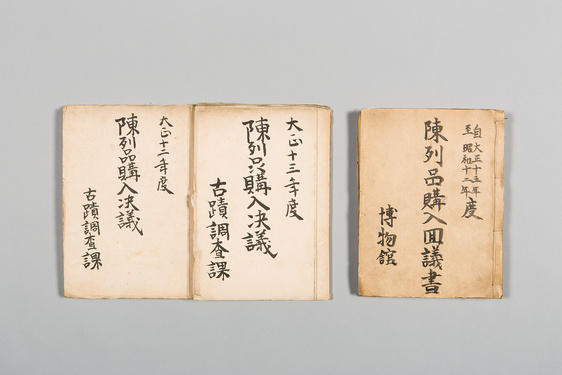 大正十二年度
陳列品購入决議
古蹟調査課
大正十三年度
陳列品購入决議
古蹟調査課
自大正十五年
至昭和十二年
度
陳列品購入回議書
博物館